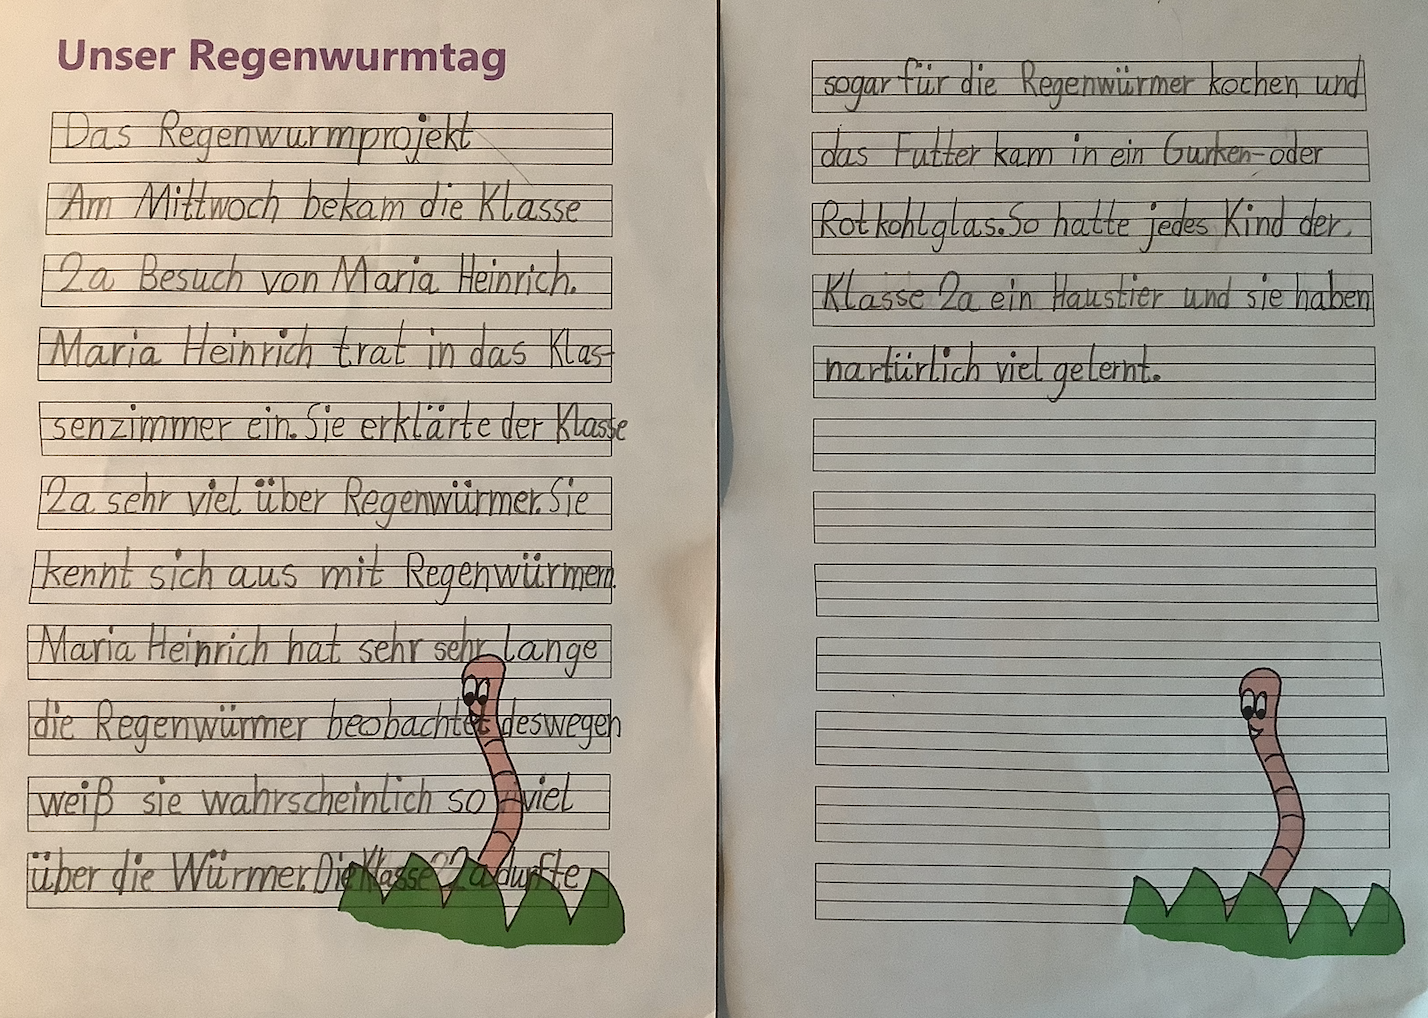 Unser Regenwurmtag
Das Regenwurmprojekt
Am Mittwoch bekam die Klasse
2a Besuch von Maria Heinrich.
Maria Heinrich trat in das Klas-
senzimmer ein. Sie erklärte der Klasse
2a sehr viel über Regenwürmer. Sie
kennt sich aus mit Regenwürmern.
Maria Heinrich hat sehr sehr lange
die Regenwürmer beobachtet deswegen
weiß sie wahrscheinlich so viel
über die Würmer. Die Klasse 2a durfte
sogar für die Regenwürmer kochen und
das Futter kam in ein Gurken-oder
Rotkohlglas. So hatte jedes Kind der
Klasse 2a ein Haustier und sie haben
nartürlich viel gelernt.